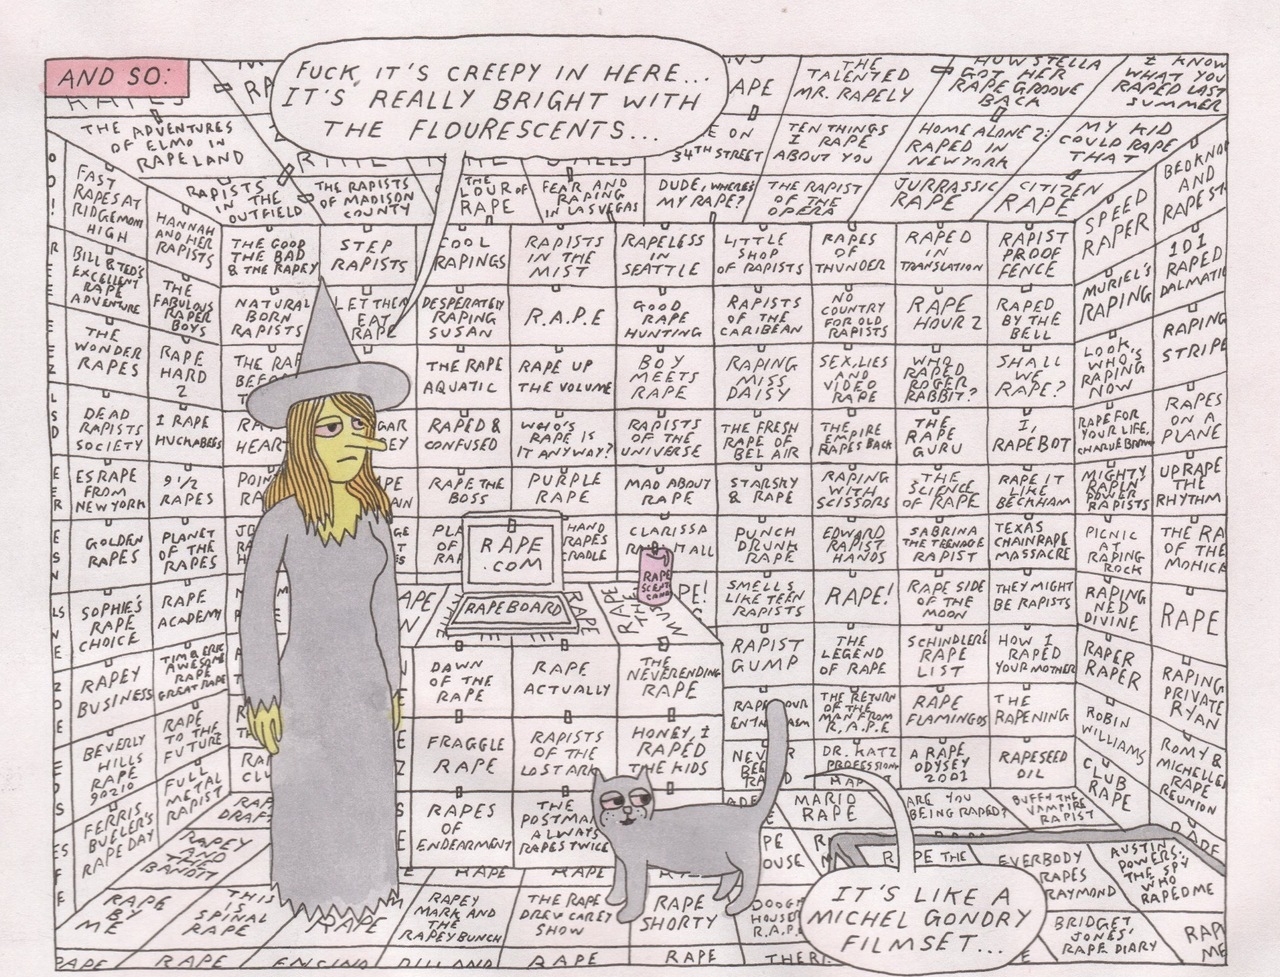 AND SO:
FUCK, IT'S CREEPY IN HERE...
IT'S REALLY BRIGHT WITH
THE FLOURESCENTS...
THE TALENTED MR. RAPELY
HOW STELLA GOT HER RAPE GROOVE BACK
I KNOW WHAT YOU RAPED LAST SUMMER
THE ADVENTURES OF ELMO IN RAPELAND
34TH STREET
TEN THINGS I RAPE ABOUT YOU
HOME ALONE 2: RAPED IN NEW YORK
MY KID COULD RAPE THAT
RAPISTS IN THE OUTFIELD
THE RAPISTS OF MADISON COUNTY
RAPE
FEAR AND RAPING IN LAS VEGAS
DUDE, WHERE'S MY RAPE?
THE RAPIST OF THE OPERA
JURRASSIC RAPE
CITIZEN RAPE
FAST RAPES AT RIDGEMONT HIGH
HANNAH AND HER RAPISTS
BILL & TED'S EXCELLENT RAPE ADVENTURE
THE FABULOUS RAPER BOYS
THE WONDER RAPES
RAPE HARD 2
DEAD RAPISTS SOCIETY
I RAPE HUCKABEES
ESRAPE FROM NEW YORK
9 1/2 RAPES
GOLDEN RAPES
PLANET OF THE RAPES
SOPHIE'S RAPE CHOICE
RAPE ACADEMY
RAPEY BUSINESS
TIM & ERIC AWESOME RAPE GREAT RAPE
BEVERLY HILLS RAPE 90210
RAPE TO THE FUTURE
FERRIS BUELER'S RAPE DAY
FULL METAL RAPIST
THE GOOD THE BAD & THE RAPEY
STEP RAPISTS
COOL RAPINGS
RAPISTS IN THE MIST
RAPELESS IN SEATTLE
LITTLE SHOP OF RAPISTS
RAPES OF THUNDER
RAPED IN TRANSLATION
RAPIST PROOF FENCE
NATURAL BORN RAPISTS
LET THEM EAT RAPE
DESPERATELY RAPING SUSAN
R.A.P.E
GOOD RAPE HUNTING
RAPISTS OF THE CARIBEAN
NO COUNTRY FOR OLD RAPISTS
RAPE HOUR 2
RAPED BY THE BELL
THE RAPE AQUATIC
RAPE UP THE VOLUME
BOY MEETS RAPE
RAPING MISS DAISY
SEX, LIES AND VIDEO RAPE
WHO RAPED ROGER RABBIT?
SHALL WE RAPE?
RAPED & CONFUSED
WHO'S RAPE IS IT ANYWAY?
RAPISTS OF THE UNIVERSE
THE FRESH RAPE OF BEL AIR
THE EMPIRE RAPES BACK
THE RAPE GURU
I, RAPEBOT
RAPE THE BOSS
PURPLE RAPE
MAD ABOUT RAPE
STARSKY & RAPE
RAPING WITH SCISSORS
THE SCIENCE OF RAPE
RAPE IT LIKE BECKHAM
HAND RAPES CRADLE
CLARISSA
PUNCH DRUNK RAPE
EDWARD RAPIST HANDS
SABRINA THE TEENAGE RAPIST
TEXAS CHAINRAPE MASSACRE
RAPE.COM
RAPEBOARD
RAPE SCENT CANDLE
SMELLS LIKE TEEN RAPISTS
RAPE!
RAPE SIDE OF THE MOON
THEY MIGHT BE RAPISTS
RAPIST GUMP
THE LEGEND OF RAPE
SCHINDLER'S RAPE LIST
HOW I RAPED YOUR MOTHER
DAWN OF THE RAPE
RAPE ACTUALLY
THE NEVERENDING RAPE
THE RETURN OF THE MAN FROM R.A.P.E
RAPE FLAMINGOS
THE RAPENING
FRAGGLE RAPE
RAPISTS OF THE LOST ARK
HONEY, I RAPED THE KIDS
DR. KATZ
A RAPE ODYSEY 2001
RAPESEED OIL
RAPES OF ENDEARMENT
THE POSTMAN ALWAYS RAPES TWICE
MARIO RAPE
ARE YOU BEING RAPED?
BUFFY THE VAMPIRE RAPIST
SPEED RAPER
BEDKNO
AND
RAPEST
MURIEL'S RAPING
101 RAPED DALMATI
LOOK WHO'S RAPING NOW
RAPING STRIPE
RAPE FOR YOUR LIFE, CHARLIE BROWN
RAPES ON A PLANE
MIGHTY RAPIN POWER RAPISTS
UPRAPE THE RHYTHM
PICNIC AT RAPING ROCK
THE RA
OF THE
MOHICA
RAPING NED DIVINE
RAPE
RAPER RAPER
RAPING PRIVATE RYAN
ROBIN WILLIAMS
CLUB RAPE
ROMY & MICHELLE RAPE REUNION
RAPEY AND THE BANDIT
RAPE BY ME
THIS IS SPINAL RAPE
RAPE
RAPEY MARK AND THE RAPEY BUNCH
THE RAPE DREW CAREY SHOW
RAPE SHORTY
EVERBODY RAPES RAYMOND
AUSTIN POWERS: THE SPY WHO RAPED ME
BRIDGET JONES' RAPE DIARY
RAPE
RAPE
RAPE
IT'S LIKE A
MICHEL GONDRY
FILMSET...